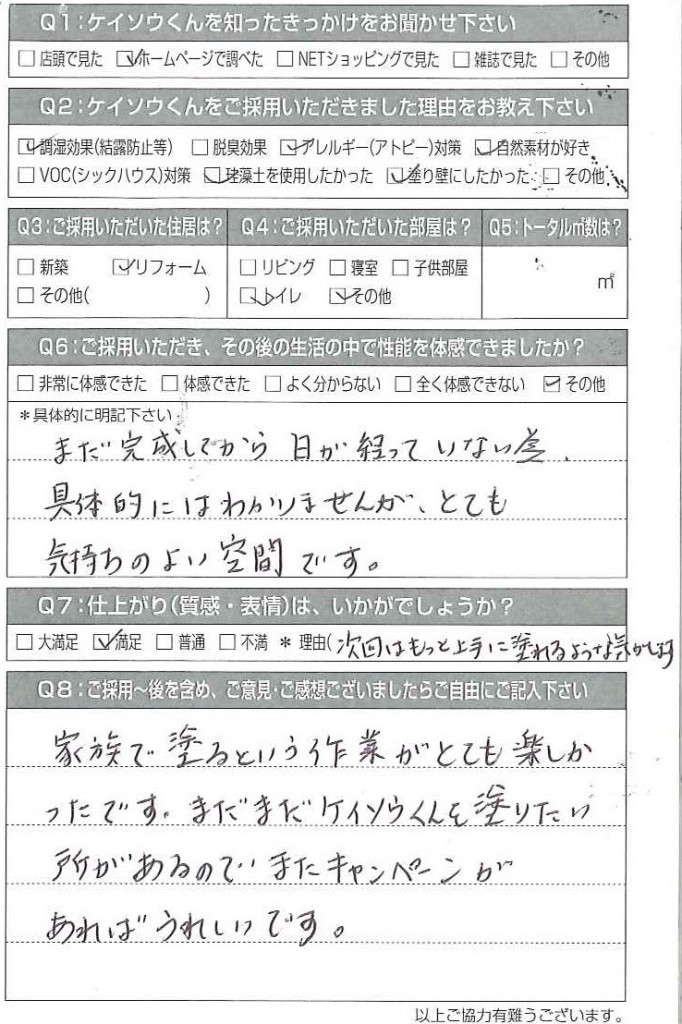 Q1:ケイソウくんを知ったきっかけをお聞かせ下さい
□店頭で見た ☑ホームページで調べた □NETショッピングで見た □雑誌で見た □その他
Q2:ケイソウくんをご採用いただきました理由をお教え下さい
☑調湿効果(結露防止等) □脱臭効果 ☑アレルギー(アトピー)対策 ☑自然素材が好き
□VOC(シックハウス)対策 ☑珪藻土を使用したかった ☑塗り壁にしたかった □その他
Q3:ご採用いただいた住居は? Q4:ご採用いただいた部屋は? Q5:トータル㎡数は?
□新築 ☑リフォーム □リビング □寝室 □子供部屋 ㎡
□その他( ) ☑トイレ ☑その他
Q6:ご採用いただき、その後の生活の中で性能を体感できましたか?
□非常に体感できた □体感できた □よく分からない □全く体感できない ☑その他
*具体的に明記下さい
まだ完成してから日が経っていない為、
具体的にはわかりませんが、とても
気持ちのよい空間です。
Q7:仕上がり(質感・表情)は、いかがでしょうか?
□大満足 ☑満足 □普通 □不満 *理由(次回はもっと上手に塗れるような気がします
Q8:ご採用〜後を含め、ご意見・ご感想ございましたらご自由にご記入下さい
家族で塗るという作業がとても楽しか
ったです。まだまだケイソウくんを塗りたい
所があるのでまたキャンペーンが
あればうれしいです。
以上ご協力有難うございます。